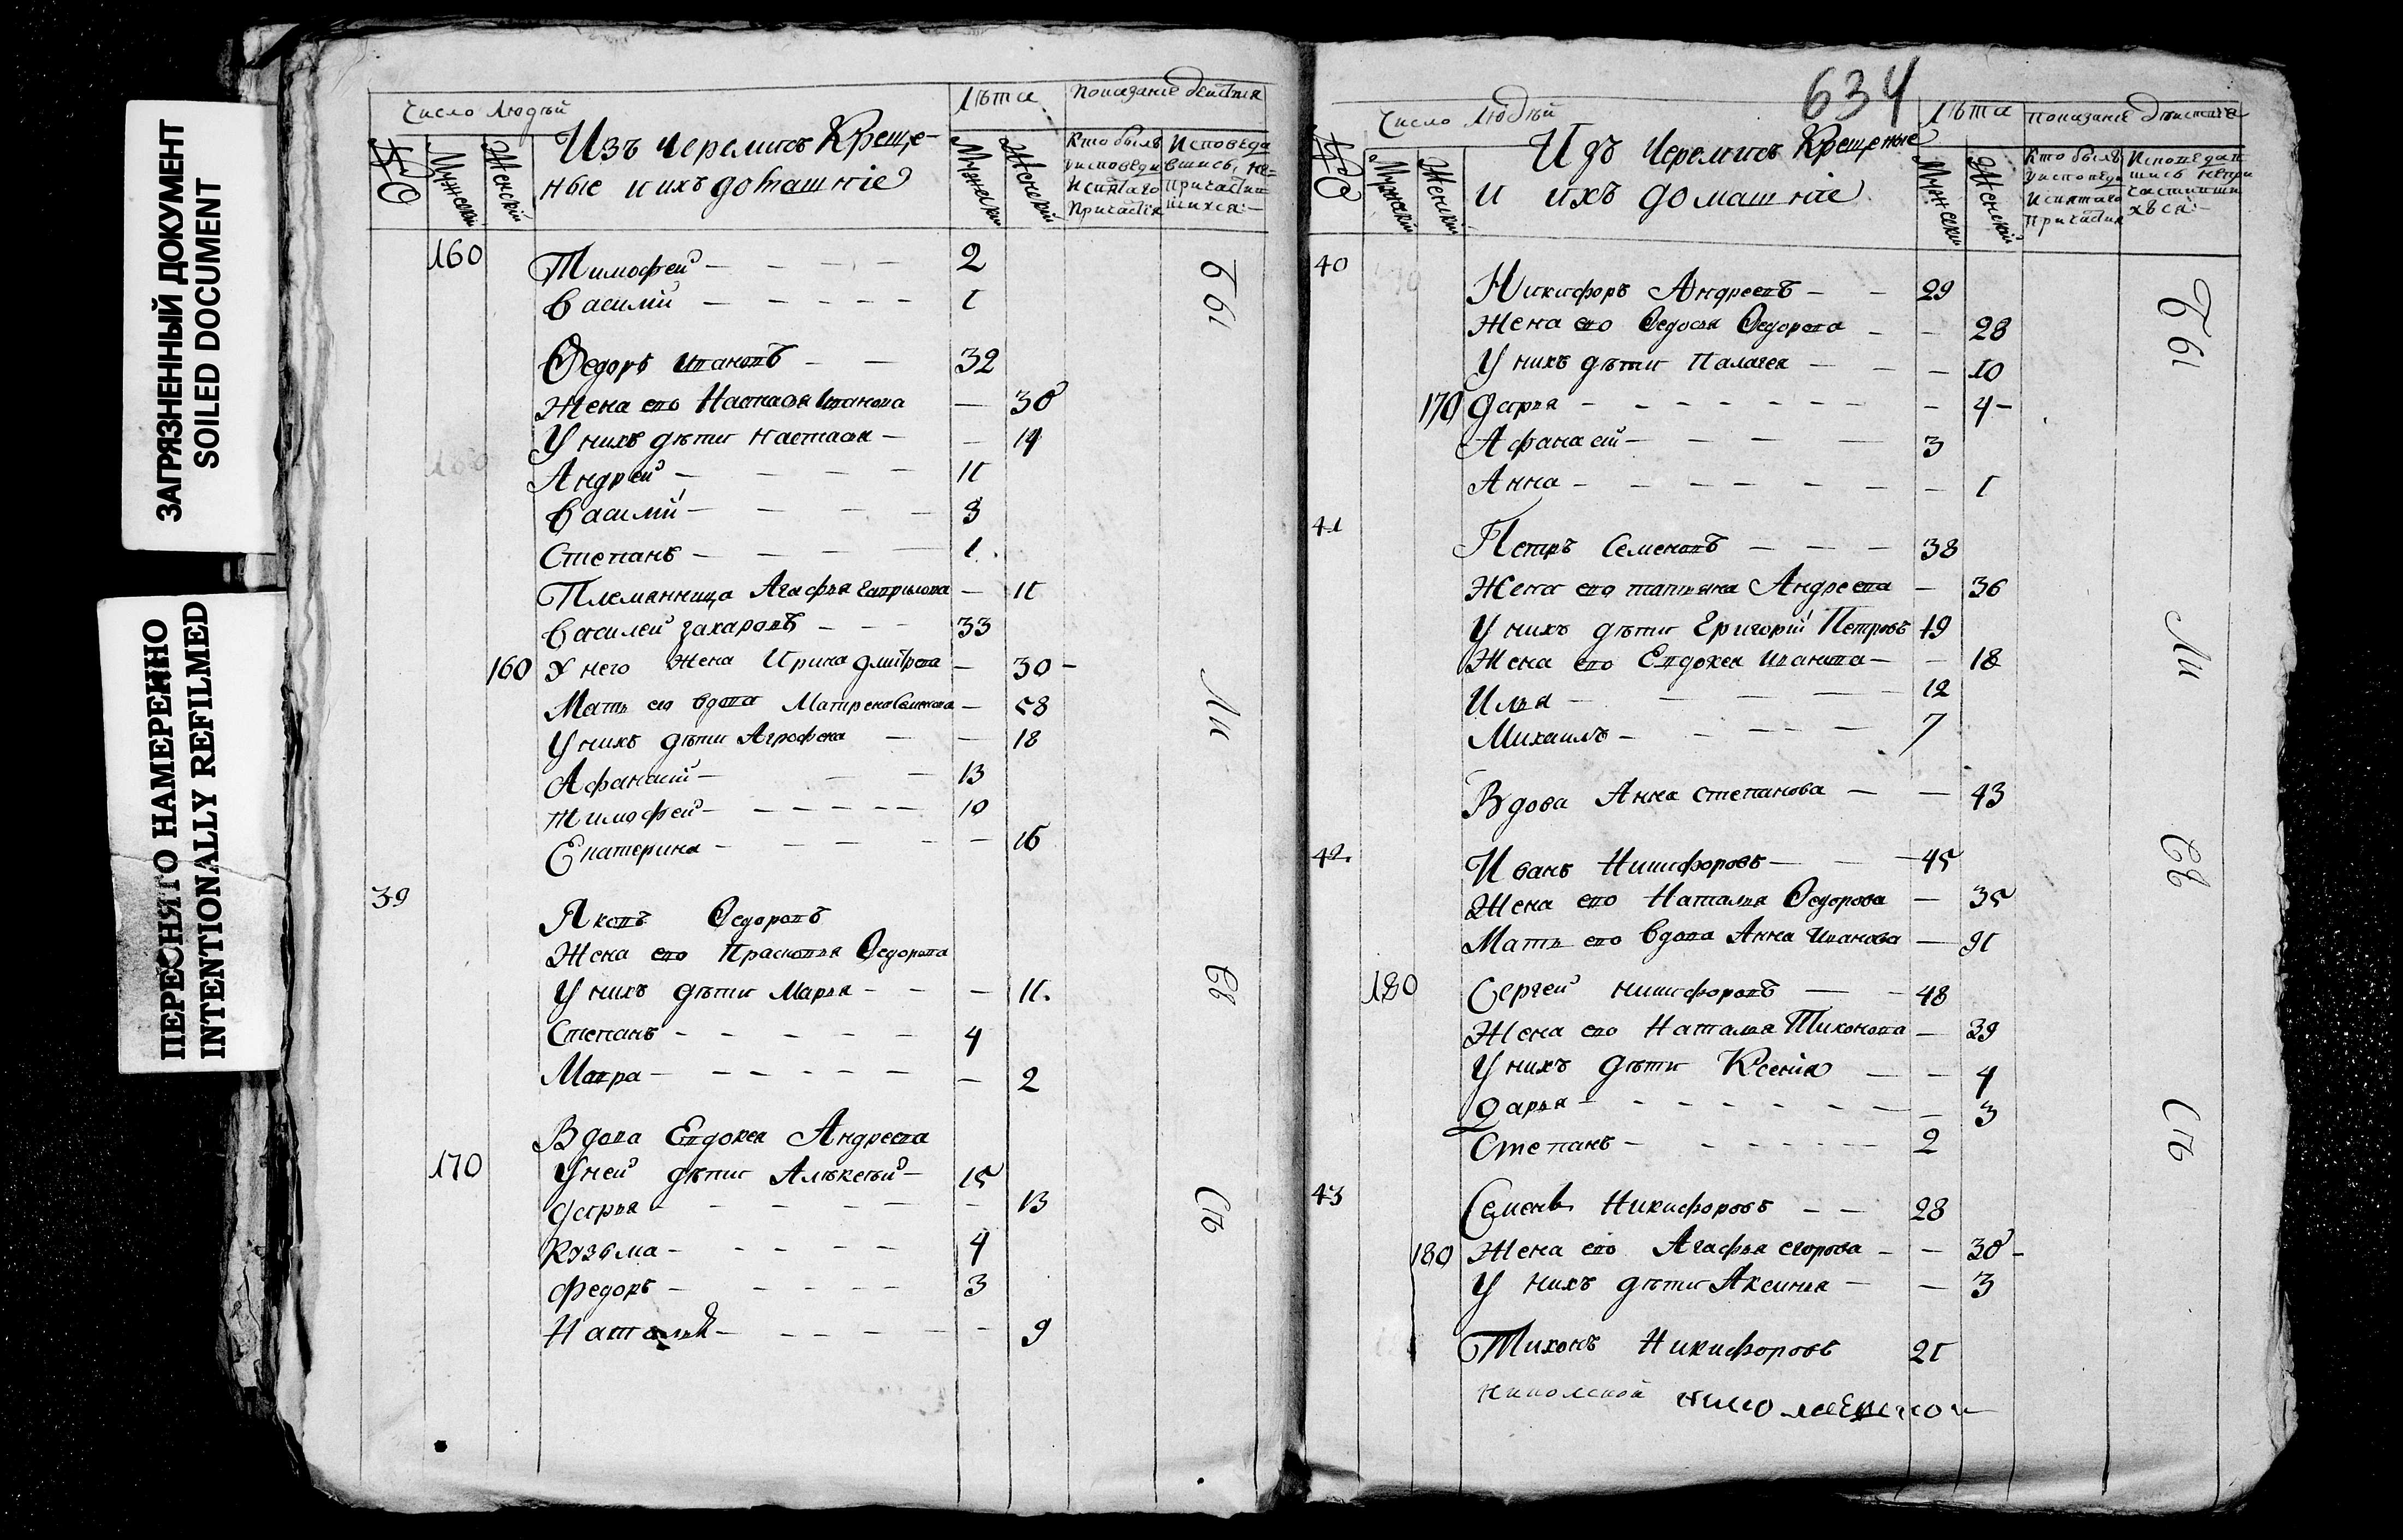 ЗАГРЯЗНЕННЫЙ ДОКУМЕНТ
SOILED DOCUMENT
ПЕРЕСНЯТО НАМЕРЕННО
INTENTIONALLY REFILMED
Число Людѣй
Лѣта
Показанїе действия
№
Мужескїй
Женскїй
Изъ черемисъ Креще-
ные и ихъ домашнїе
Мужескїй
Женскїй
Кто былъ
уисповеди
Исвятаго
Причастїя
Исповеда
вшись, не-
причасти
шихся
160 Тимофей 2
Василїй 1
Ѳедоръ Ивановъ 32
Жена его Настасья Иванова 30
У нихъ дѣти Настасья 14
Андрей 11
Василїй 3
Степанъ 1
Племянница Агафья Гаврилова 11
Василей Захаровъ 33
160 У него жена Ирина Дмитрева 30
Мать его вдова Матрена 58
У нихъ дѣти Агрофена 18
Афанасїй 13
Тимофей 10
Екатерина 16
39 Яковъ Ѳедоровъ
Жена его Прасковья Ѳедорова
У нихъ дѣти Марья 11
Степанъ 4
Мавра 2
Вдова Евдокея Андреева
170 У ней дѣти Алѣксѣй 15
Дарья 13
Кузьма 4
Федоръ 3
Наталья 9
бы
Ли
Св
Съ
634
Число Людѣй
Лѣта
Показанїе
№
Мужескїй
Женскїй
Изъ Черемисъ Крещеные
и ихъ домашнїе
Мужескїй
Женскїй
Кто былъ
уисповеди
Исвятаго
Причастия
Исповедав
шись непри
частивши
хъся
40 Никифоръ Андреевъ 29
Жена его Ѳедосья Ѳедорова 28
У нихъ дѣти Палагея 10
170 Дарья 4
Афанасїй 3
Анна 1
41 Петръ Семеновъ 38
Жена его татьяна Андреева 36
У нихъ дѣти Григорїй Петровъ 19
Жена его Евдокея Иванова 18
Илья 12
Михаилъ 7
Вдова Анна Степанова 43
42 Иванъ Никифоровъ 45
Жена его Наталья Ѳедорова 35
Мать его вдова Анна Иванова 91
180 Сергей Никифоровъ 48
Жена его Наталья Тихонова 39
У нихъ дѣти Ксенїя 4
Дарья 3
Степанъ 2
43 Семенъ Никифоровъ 28
180 Жена его Агафья Егорова 30
У нихъ дѣти Аксинья 3
Тихонъ Никифоровъ 21
бы
Ли
Св
Съ